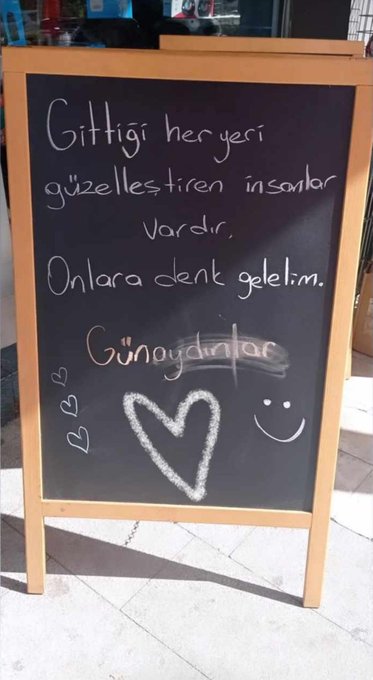 Gittiği her yeri
güzelleştiren insanlar
vardır.
Onlara denk gelelim.
Günaydınlar